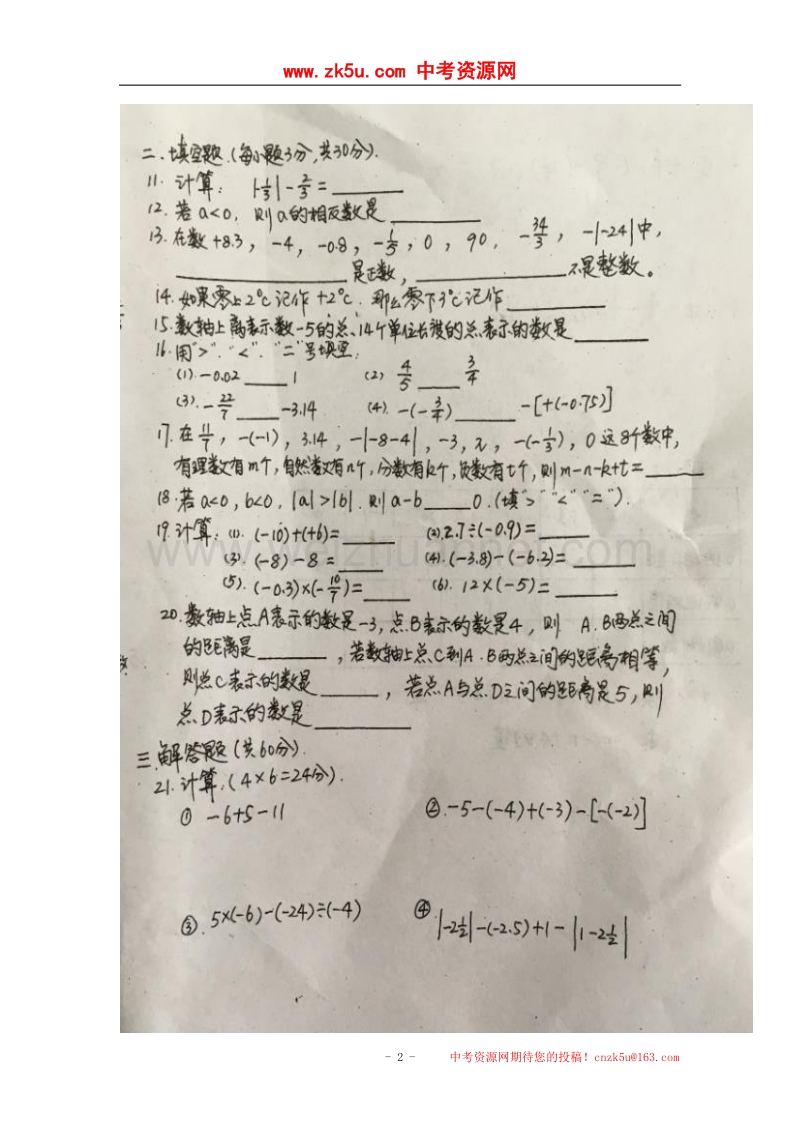 www.zk5u.com 中考资源网
二.填空题.(每小题3分,共30分).
11. 计算: |-1/3| - 2/3 = ______
12. 若a<0, 则a的相反数是 ______
13. 在数+8.3, -4, -0.8, -1/5, 0, 90, -34/3, -|-24|中,
______ 是正数, ______ 不是整数。
14. 如果零上2℃记作+2℃, 那么零下3℃记作 ______
15. 数轴上离表示数-5的点、14个单位长度的点表示的数是 ______
16. 用“>”.“<”.“=”号填空:
(1). -0.02 ____ 1 (2) 4/5 ____ 3/4
(3). -22/7 ____ -3.14 (4). -(-3/4) ____ -[+(-0.75)]
17. 在 11/7, -(-1), 3.14, -|-8-4|, -3, π, -(-1/3), 0 这8个数中,
有理数有m个, 自然数有n个, 分数有k个, 负数有t个, 则m-n-k+t= ____
18. 若a<0, b<0, |a|>|b|. 则a-b ____ 0. (填“>”“<”“=”).
19. 计算: (1). (-10)+(+6)= ____ (2). 2.7÷(-0.9)= ____
(3). (-8)-8= ____ (4). (-3.8)-(-6.2)= ____
(5). (-0.3)×(-10/7)= ____ (6). 12×(-5)= ____
20. 数轴上点A表示的数是-3, 点B表示的数是4, 则 A.B两点之间
的距离是 ____, 若数轴上点C到A.B两点之间的距离相等,
则点C表示的数是 ____, 若点A与点D之间的距离是5, 则
点D表示的数是 ____
三.解答题(共60分).
21. 计算.(4×6=24分).
① -6+5-11 ②. -5-(-4)+(-3)-[-(-2)]
③. 5×(-6)-(-24)÷(-4) ④ |-2 1/2|-(-2.5)+1-|1-2 1/2|
- 2 - 中考资源网期待您的投稿!cnzk5u@163.com